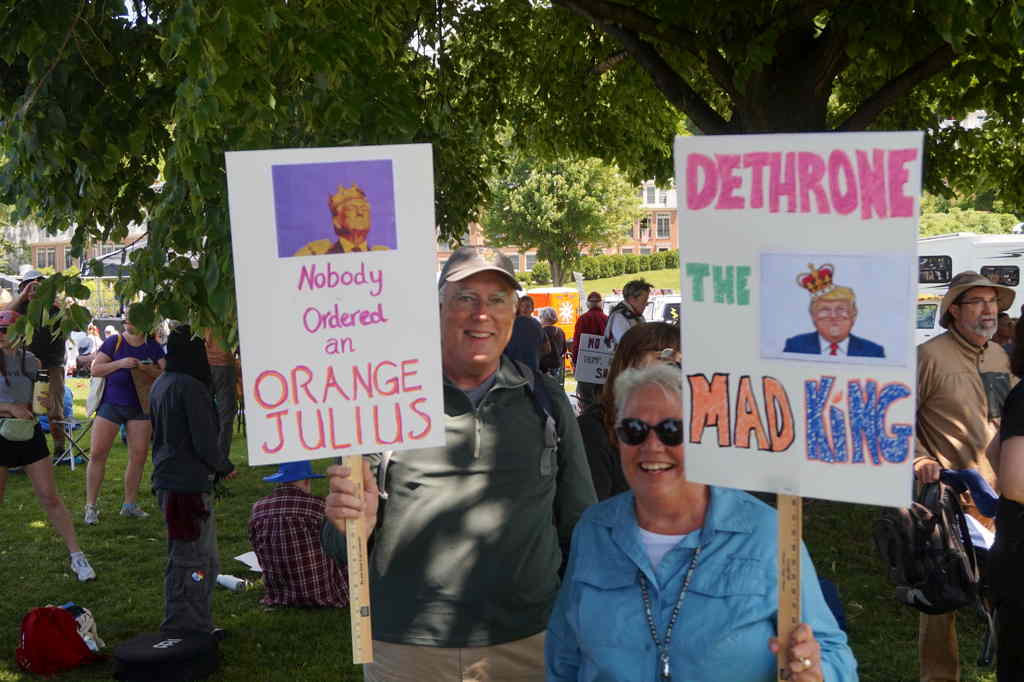 Nobody
Ordered
an
ORANGE
JULIUS
DETHRONE
THE
MAD KING
NO